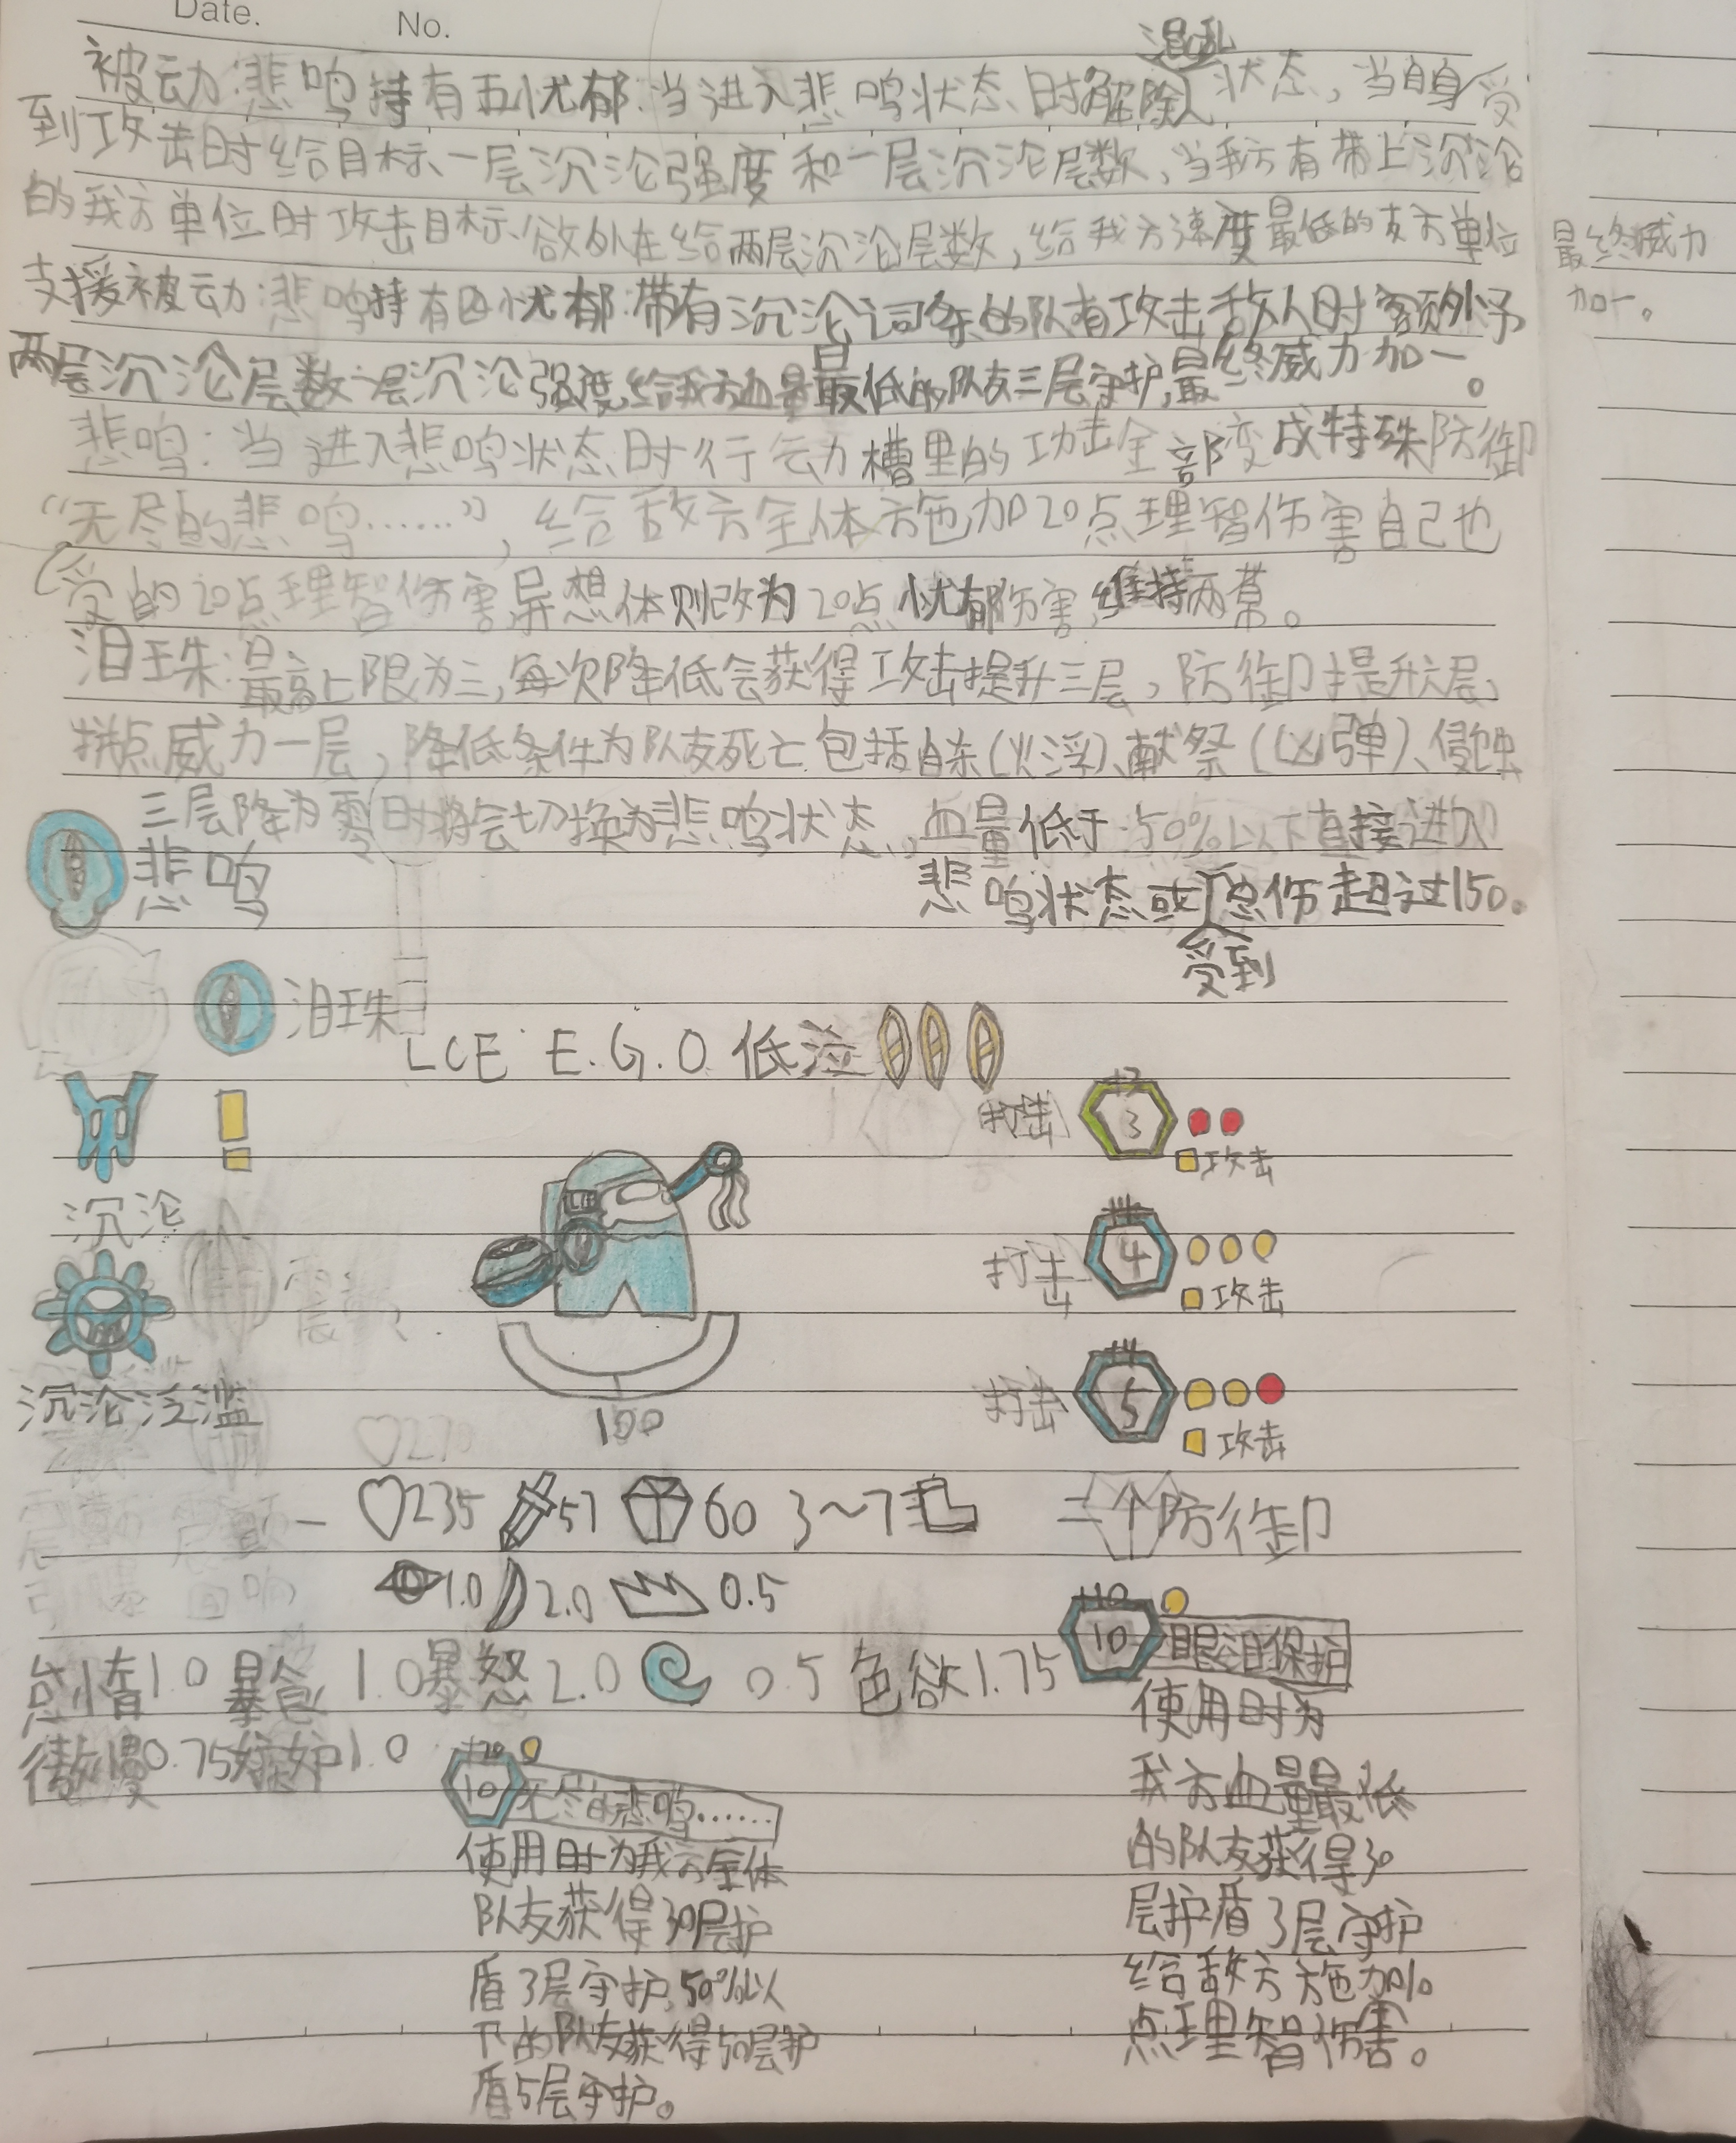 Date.
No.
混乱
被动:悲鸣持有五忧郁:当进入悲鸣状态时解除状态,当自身受
到攻击时给目标一层沉沦强度和一层沉沦层数,当我方有带上沉沦
的我方单位时攻击目标 外在给两层沉沦层数,给我方速度最低的友方单位
最终威力
加一。
支援被动:悲鸣持有四忧郁:带有沉沦词条的队有攻击敌人时额外予
两层沉沦层数一层沉沦强度,给我方血量最低的队友三层守护,最终威力加一。
悲鸣:当进入悲鸣状态时行动槽里的功击全部变成特殊防御
“无尽的悲鸣……”,给敌方全体施加20点理智伤害自己也
受的20点理智伤害,异想体则改为20点忧郁伤害,维持两幕。
泪珠:最高上限为三,每次降低会获得攻击提升三层,防御提升 层,
拼点威力一层,降低条件为队友死亡包括自杀(火浮)、献祭(凶弹)、侵蚀
三层降为零时将会切换为悲鸣状态。血量低于50%以下直接进入
悲鸣
悲鸣状态或总伤超过150。
受到
泪珠
LCE E.G.O 低泣
打击
+3
3
攻击
沉沦
打击
+4
4
攻击
沉沦泛滥
打击
+4
5
攻击
100
235 57 60 3~7
二个防御
1.0 2.0 0.5
+10
10
眼泪保护
怠惰1.0 暴食1.0 暴怒2.0 0.5 色欲1.75
傲慢0.75 嫉妒1.0
使用时为
我方血量最低
的队友获得30
层护盾3层守护
给敌方施加10
点理智伤害。
+20
10
无尽的悲鸣……
使用时为我方全体
队友获得30层护
盾3层守护,50%以
下的队友获得50层护
盾5层守护。